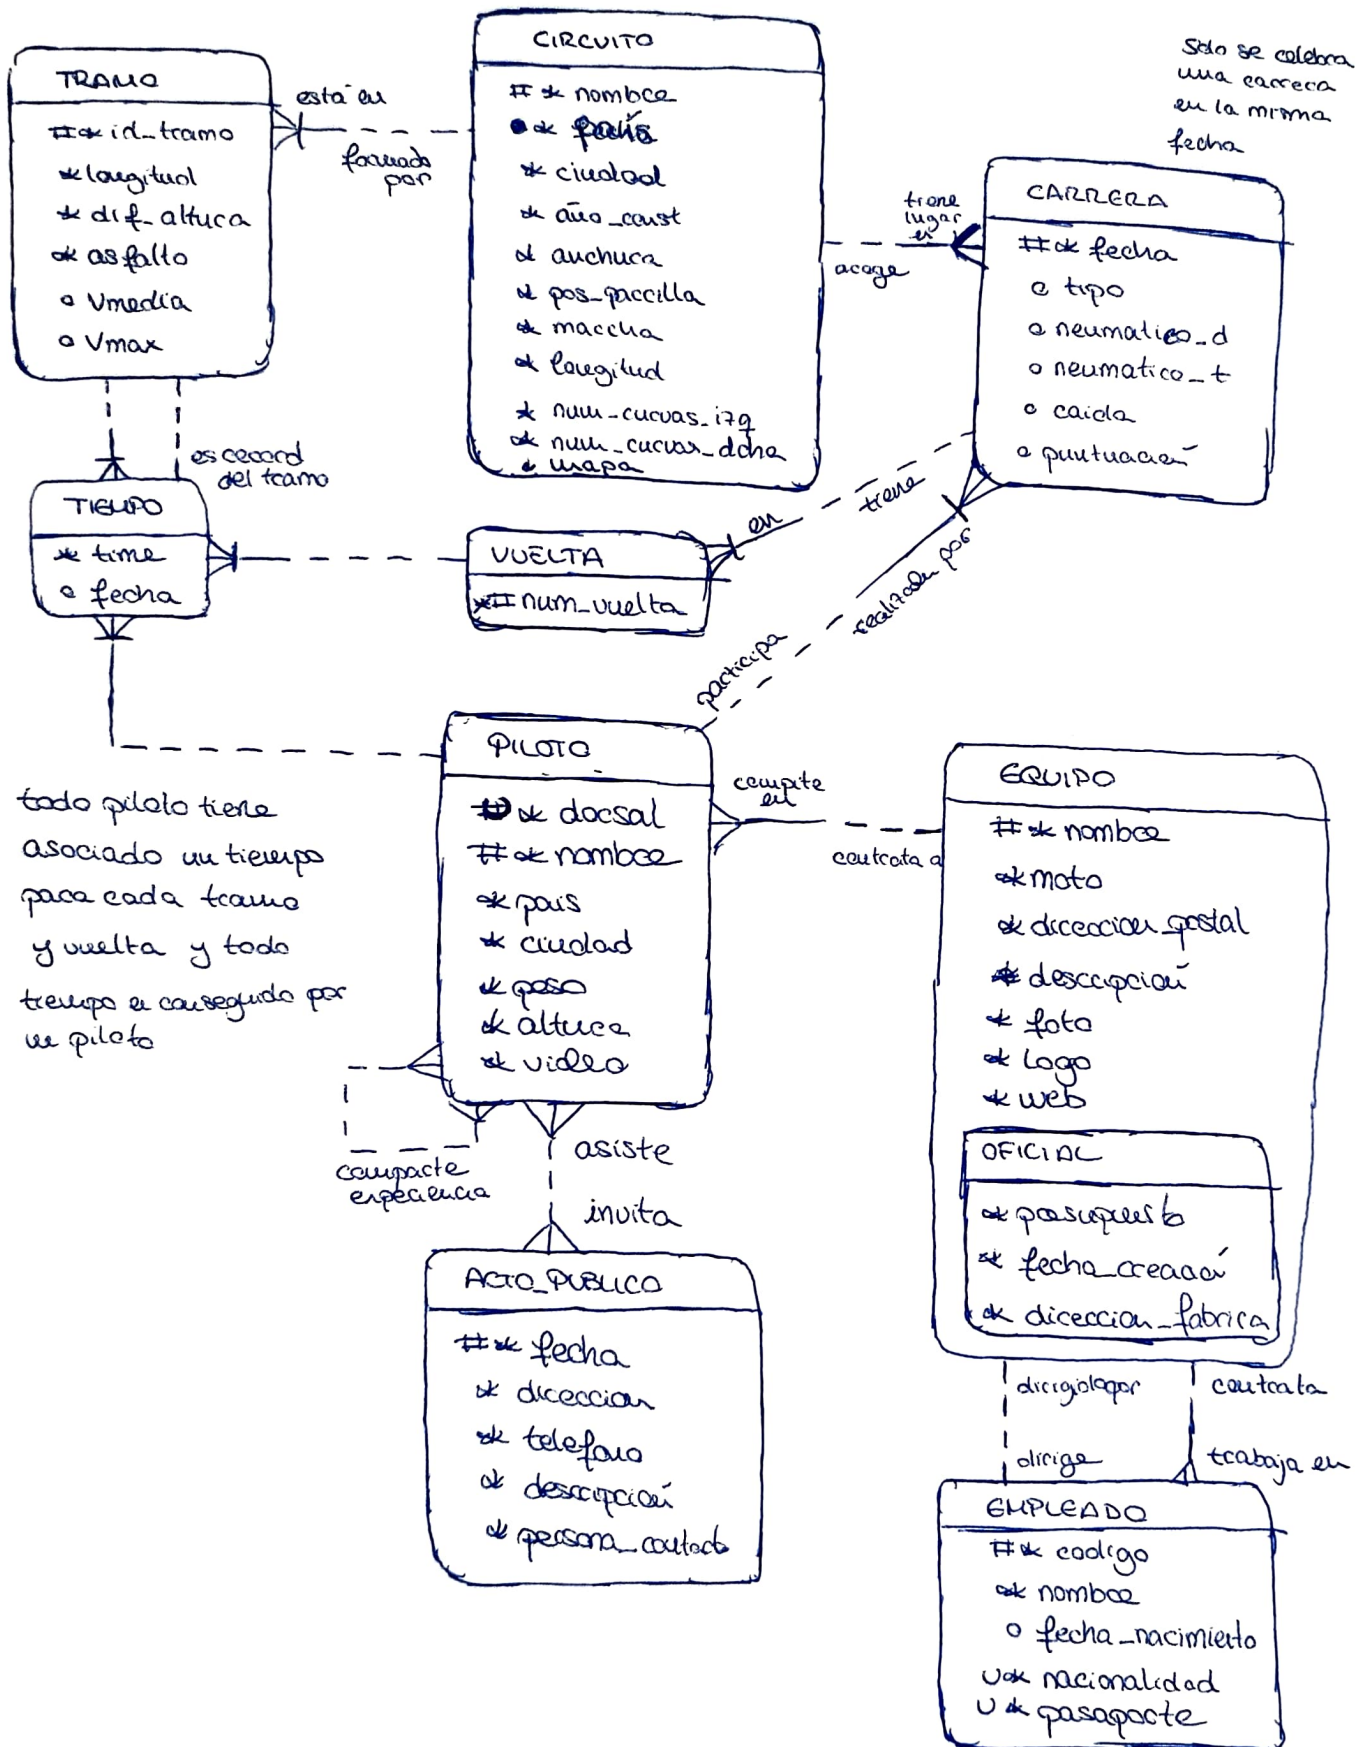 TRAMO
#* id_tramo
* longitud
* dif_altura
* asfalto
o Vmedia
o Vmax
está en
formado
por
CIRCUITO
#* nombre
* país
* ciudad
* año_const
* anchura
* pos_parrilla
* marcha
* longitud
* num_curvas_izq
* num_curvas_dcha
* mapa
Solo se celebra
una carrera
en la misma
fecha
tiene
lugar
en
acoge
CARRERA
#* fecha
o tipo
o neumatico_d
o neumatico_t
o caida
o puntuación
es record
del tramo
TIEMPO
* time
o fecha
VUELTA
*# num_vuelta
en
tiene
participa
realizada por
todo piloto tiene
asociado un tiempo
para cada tramo
y vuelta y todo
tiempo es conseguido por
un piloto
PILOTO
#* dorsal
#* nombre
* pais
* ciudad
* peso
* altura
* video
compite
en
contrata a
comparte
experiencia
asiste
invita
EQUIPO
#* nombre
* moto
* direccion_postal
* descripción
* foto
* logo
* web
OFICIAL
* presupuesto
* fecha_creación
* direccion_fabrica
dirigido por
contrata
dirige
trabaja en
ACTO_PUBLICO
#* fecha
* direccion
* telefono
* descripción
* persona_contacto
EMPLEADO
#* codigo
* nombre
o fecha_nacimiento
U* nacionalidad
U* pasaporte